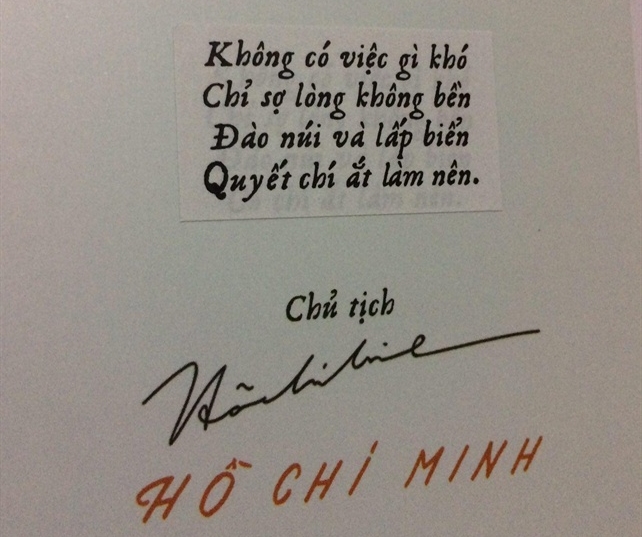 Không có việc gì khó
Chỉ sợ lòng không bền
Đào núi và lấp biển
Quyết chí ắt làm nên.
Chủ tịch
Hồ Chí Minh
HỒ CHÍ MINH